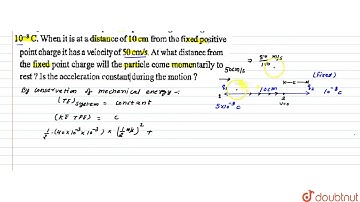 10⁻⁸ C. When it is at a distance of 10 cm from the fixed positive
point charge it has a velocity of 50 cm/s. At what distance from
the fixed point charge will the particle come momentarily to
rest ? Is the acceleration constant during the motion ?
By conservation of mechanical energy -
(TE)system = constant
(KE + PE) = C
50 cm/s
(fixed)
10cm
v=0
10⁻⁸ C
5×10⁻⁸ C
doubtnut